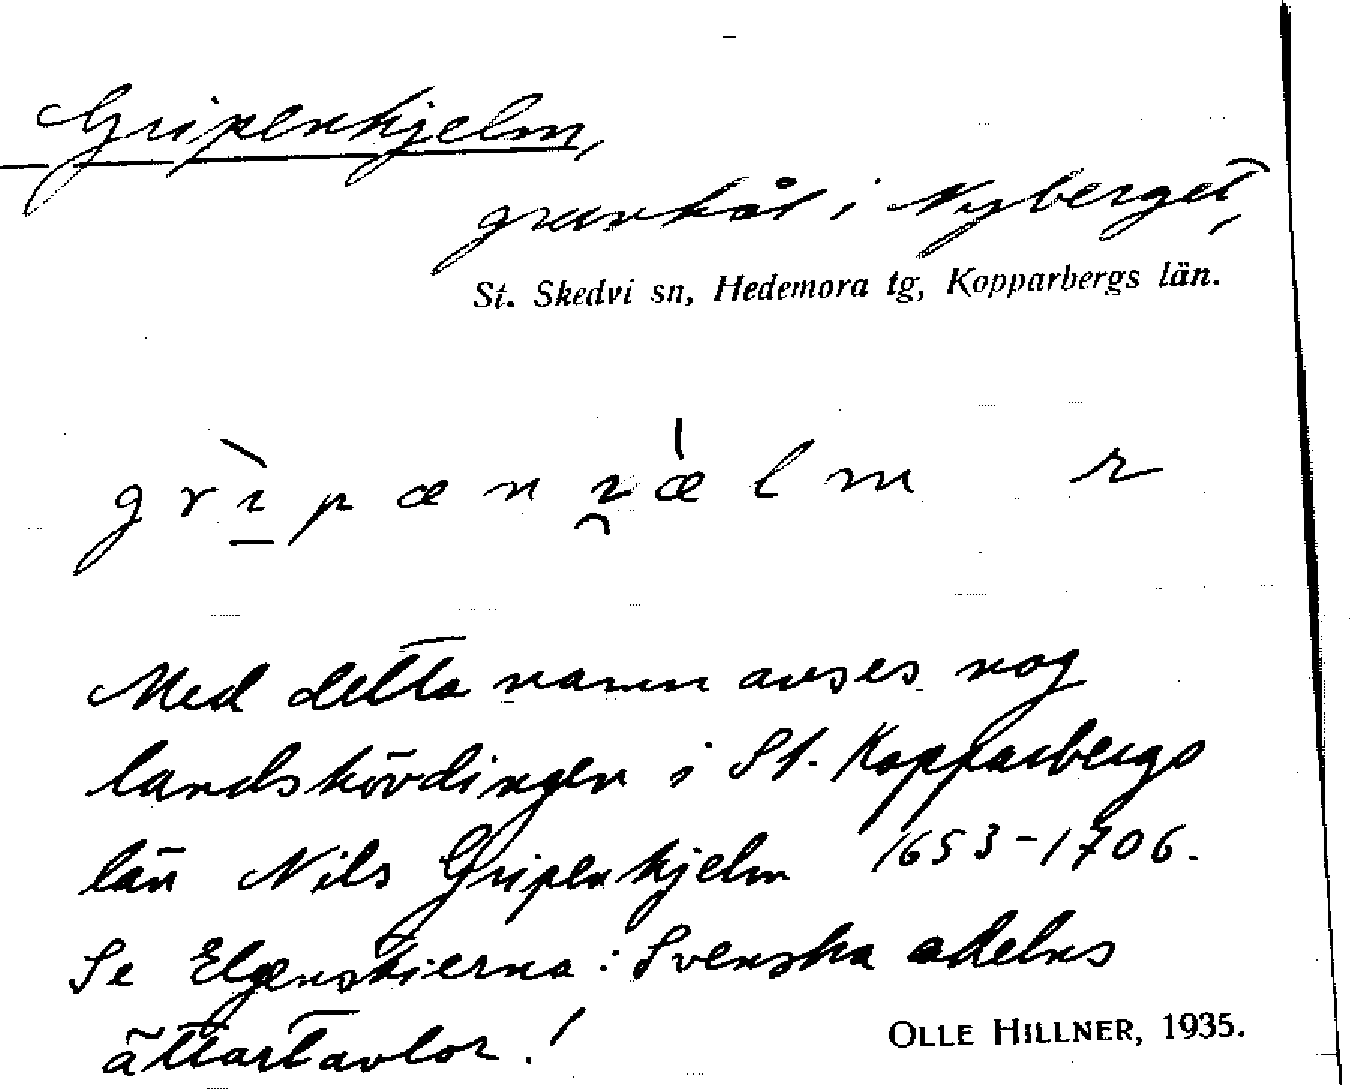 Gripenhjelm,
gruvhål i Nyberget,
St. Skedvi sn, Hedemora tg, Kopparbergs län.
Med detta namn avses nog
landshövdingen i St. Kopparbergs
län Nils Gripenhjelm 1653-1706.
Se Elgenstierna: Svenska adelns
ättartavlor.!
OLLE HILLNER, 1935.